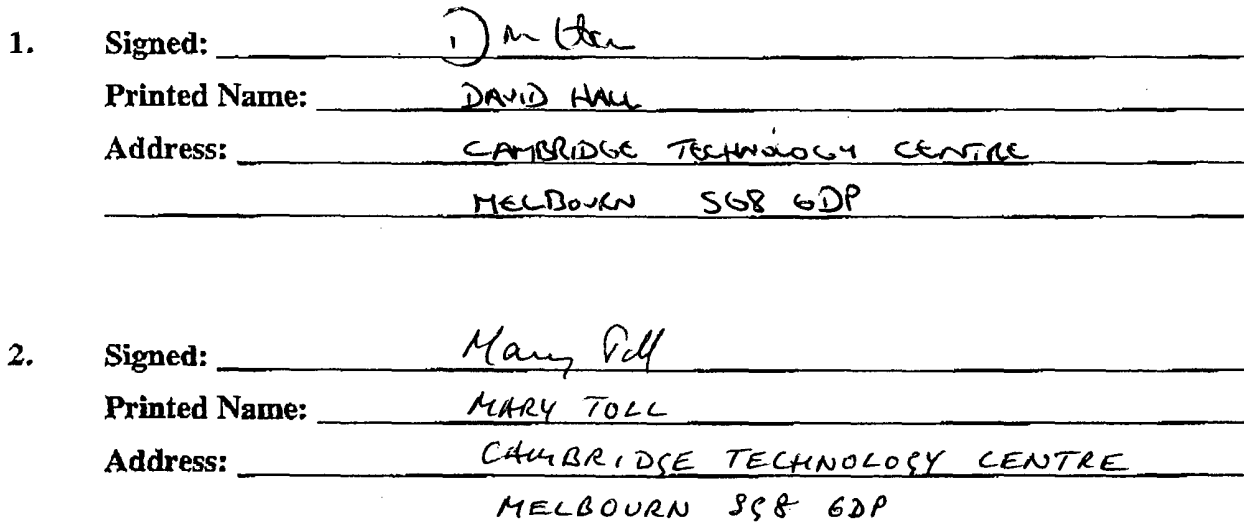 1. Signed: D M Hall
Printed Name: DAVID HALL
Address: CAMBRIDGE TECHNOLOGY CENTRE
MELBOURN SG8 6DP
2. Signed: Mary Toll
Printed Name: MARY TOLL
Address: CAMBRIDGE TECHNOLOGY CENTRE
MELBOURN SG8 6DP